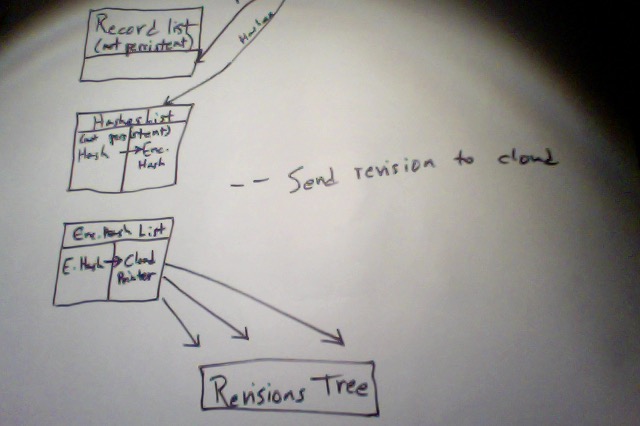 Record list
(not persistent)
Hashes
Hashes List
(not persistent)
Hash → Enc. Hash
-- Send revision to cloud
Enc. Hash List
E. Hash → Cloud Pointer
Revisions Tree